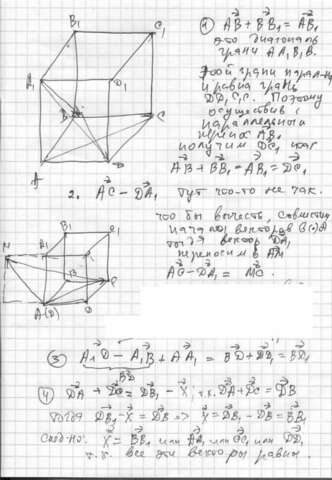 B₁ C₁
1) AB + BB₁ = AB₁
это диагональ
грани AA₁B₁B.
A₁ D₁
Этой грани паралл-на
и равна грань
DD₁C₁C. Поэтому
B C
осуществив
параллельный
перенос AB₁
получим DC₁, как
A D
AB + BB₁ = AB₁ = DC₁
2. AC − DA₁ тут что-то не так.
что бы вычесть, совместим
начала векторов
B₁ C₁
M A₁ D₁
тогда вектор DA₁
переносим в AM
B C
AC − DA₁ = MC
A(D) D
3) A₁D − A₁B + AA₁ = BD + DD₁ = BD₁
BD
4) DA + DC = DB₁ − X; т.к. DA + DC = DB
тогда DB₁ − X = DB => X = DB₁ − DB = BB₁
След-но: X = BB₁ или AA₁ или CC₁ или DD₁
т.к. все эти векторы равны.